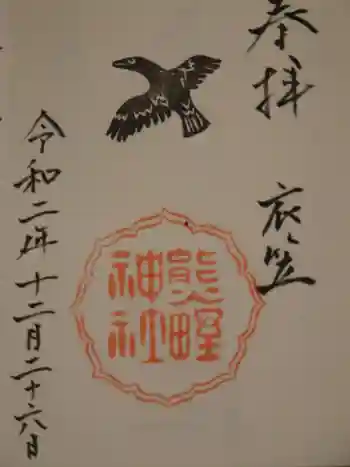 奉拝
衣笠
熊野
神社
令和二年十二月二十六日